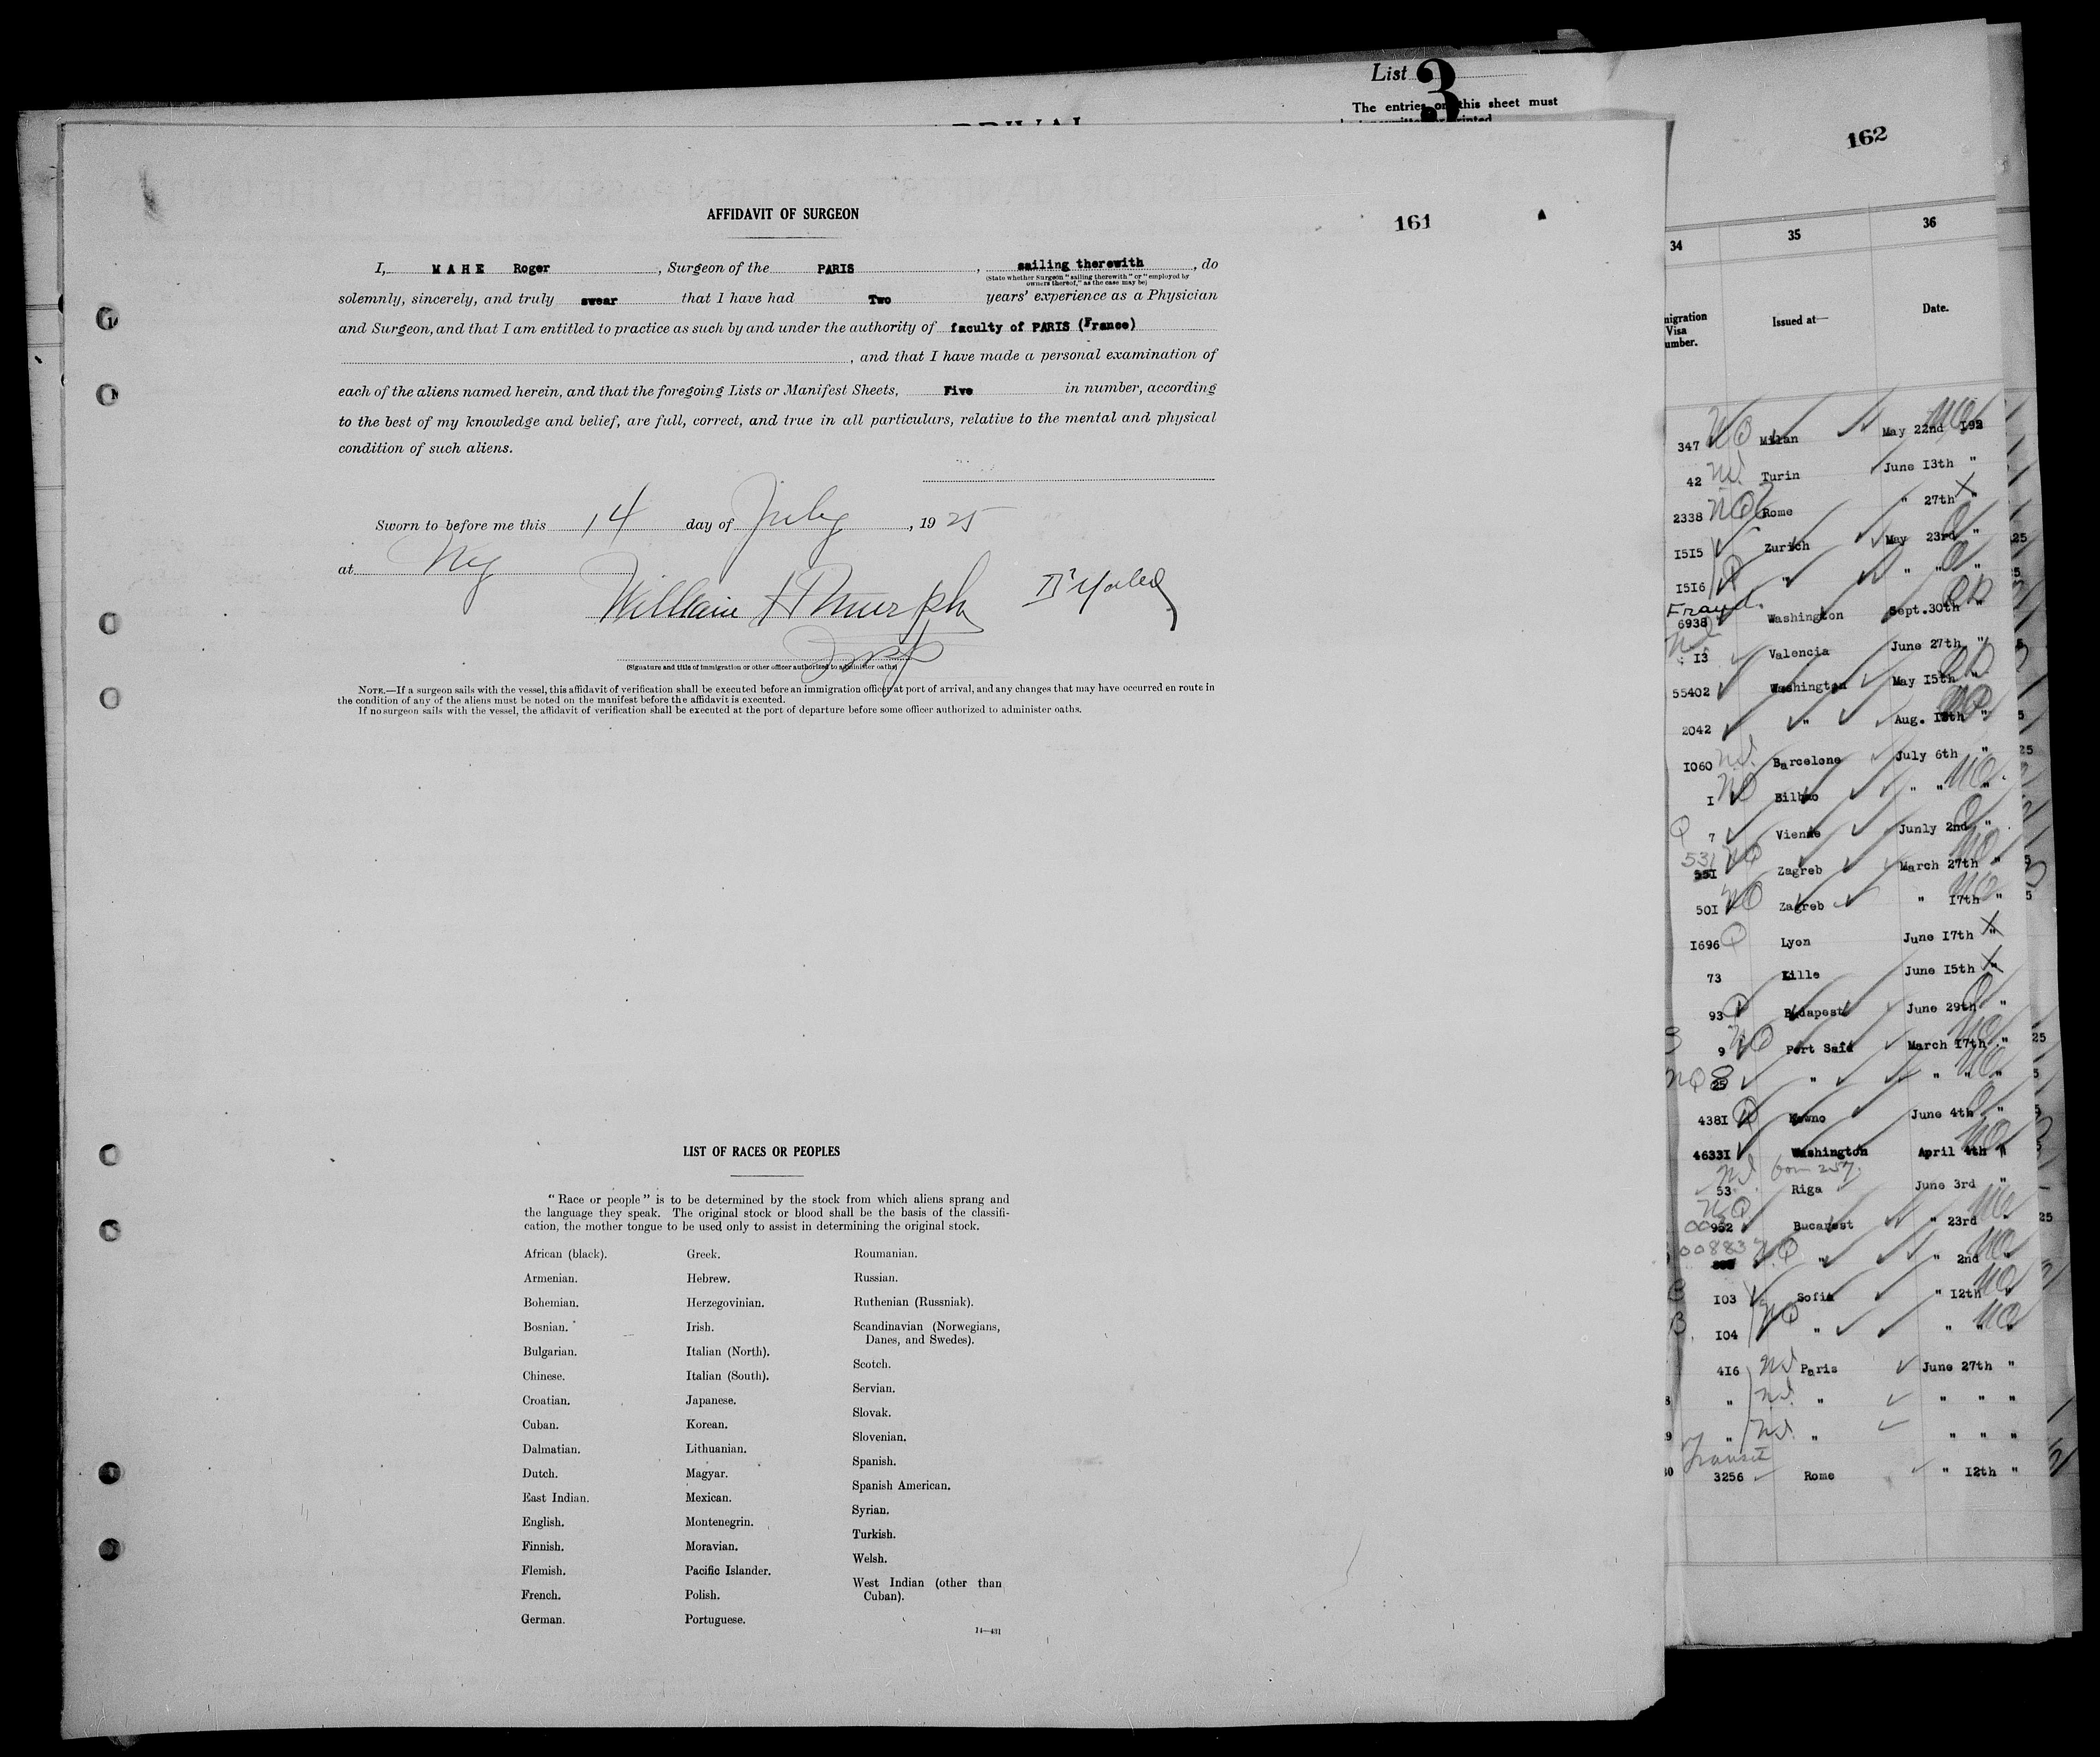 List 3
The entries on this sheet must
162
AFFIDAVIT OF SURGEON
161
I, MAHE Roger, Surgeon of the PARIS, sailing therewith, do
(State whether Surgeon "sailing therewith" or "employed by
owners thereof," as the case may be)
solemnly, sincerely, and truly swear that I have had Two years' experience as a Physician
and Surgeon, and that I am entitled to practice as such by and under the authority of faculty of PARIS (France)
, and that I have made a personal examination of
each of the aliens named herein, and that the foregoing Lists or Manifest Sheets, Five in number, according
to the best of my knowledge and belief, are full, correct, and true in all particulars, relative to the mental and physical
condition of such aliens.
Sworn to before me this 14 day of July, 1925
at NY
William H Murphy
(Signature and title of immigration or other officer authorized to administer oaths)
NOTE.—If a surgeon sails with the vessel, this affidavit of verification shall be executed before an immigration officer at port of arrival, and any changes that may have occurred en route in
the condition of any of the aliens must be noted on the manifest before the affidavit is executed.
If no surgeon sails with the vessel, the affidavit of verification shall be executed at the port of departure before some officer authorized to administer oaths.
LIST OF RACES OR PEOPLES
"Race or people" is to be determined by the stock from which aliens sprang and
the language they speak. The original stock or blood shall be the basis of the classifi-
cation, the mother tongue to be used only to assist in determining the original stock.
African (black).
Armenian.
Bohemian.
Bosnian.
Bulgarian.
Chinese.
Croatian.
Cuban.
Dalmatian.
Dutch.
East Indian.
English.
Finnish.
Flemish.
French.
German.
Greek.
Hebrew.
Herzegovinian.
Irish.
Italian (North).
Italian (South).
Japanese.
Korean.
Lithuanian.
Magyar.
Mexican.
Montenegrin.
Moravian.
Pacific Islander.
Polish.
Portuguese.
Roumanian.
Russian.
Ruthenian (Russniak).
Scandinavian (Norwegians,
Danes, and Swedes).
Scotch.
Servian.
Slovak.
Slovenian.
Spanish.
Spanish American.
Syrian.
Turkish.
Welsh.
West Indian (other than
Cuban).
14—431
34 35 36
migration
Visa
umber.
Issued at—
Date.
347 NQ Milan May 22nd 192
42 Turin June 13th "
2338 NQ Rome " 27th "
1515 Zurich May 23rd "
1516 " " " "
6938 Washington Sept. 30th "
13 Valencia June 27th "
55402 Washington May 15th "
2042 " Aug. "
1060 Barcelone July 6th "
1 NQ Bilbao " " "
Q 7 Vienne Junly 2nd "
531 NQ Zagreb March 27th "
501 NQ Zagreb " 17th "
1696 Q Lyon June 17th "
73 Lille June 15th "
93 Q Budapest June 29th "
9 NQ Port Said March 17th "
NQ 25 " " " "
4381 Q Kowno June 4th "
46331 Washington April 4th "
53 Riga June 3rd "
NQ 952 Bucarest " 23rd "
00883 NQ " " 2nd "
103 Sofia " 12th "
104 NQ " " " "
416 Paris June 27th "
" " " " "
" " " " "
Transit
3256 Rome " 12th "